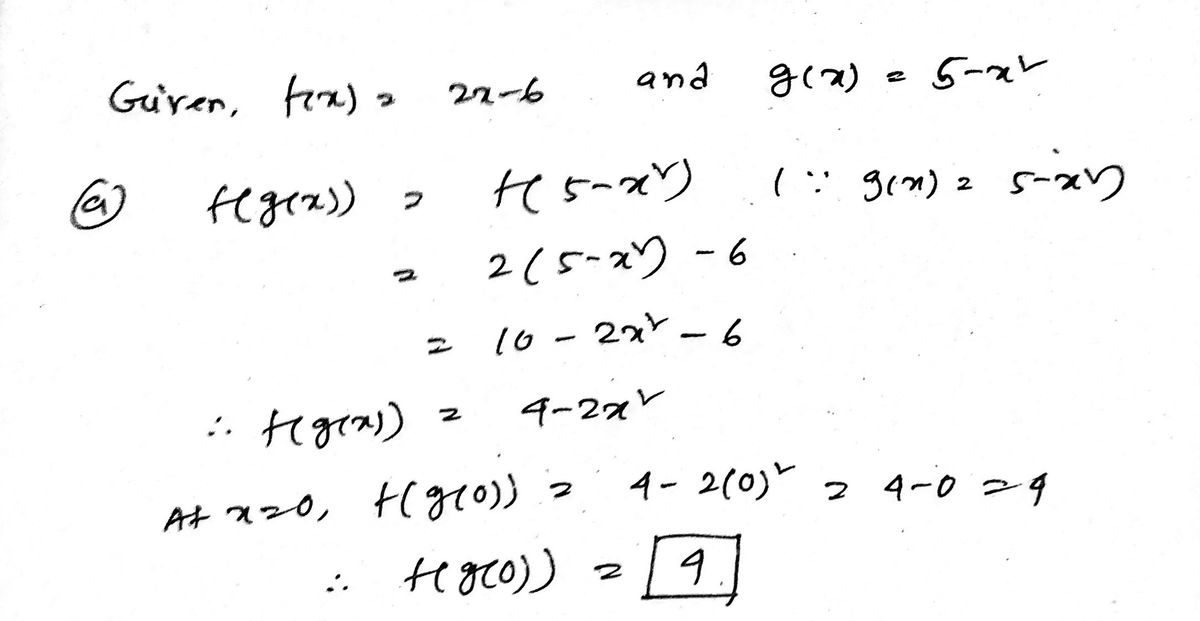 Given, f(x) = 2x-6 and g(x) = 5-x²
(a) f(g(x)) = f(5-x²) (∵ g(x) = 5-x²)
= 2(5-x²) - 6
= 10 - 2x² - 6
∴ f(g(x)) = 4-2x²
At x=0, f(g(0)) = 4- 2(0)² = 4-0 = 4
∴ f(g(0)) = 4